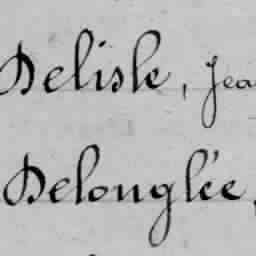 Delisle, Jea
Delonglée,